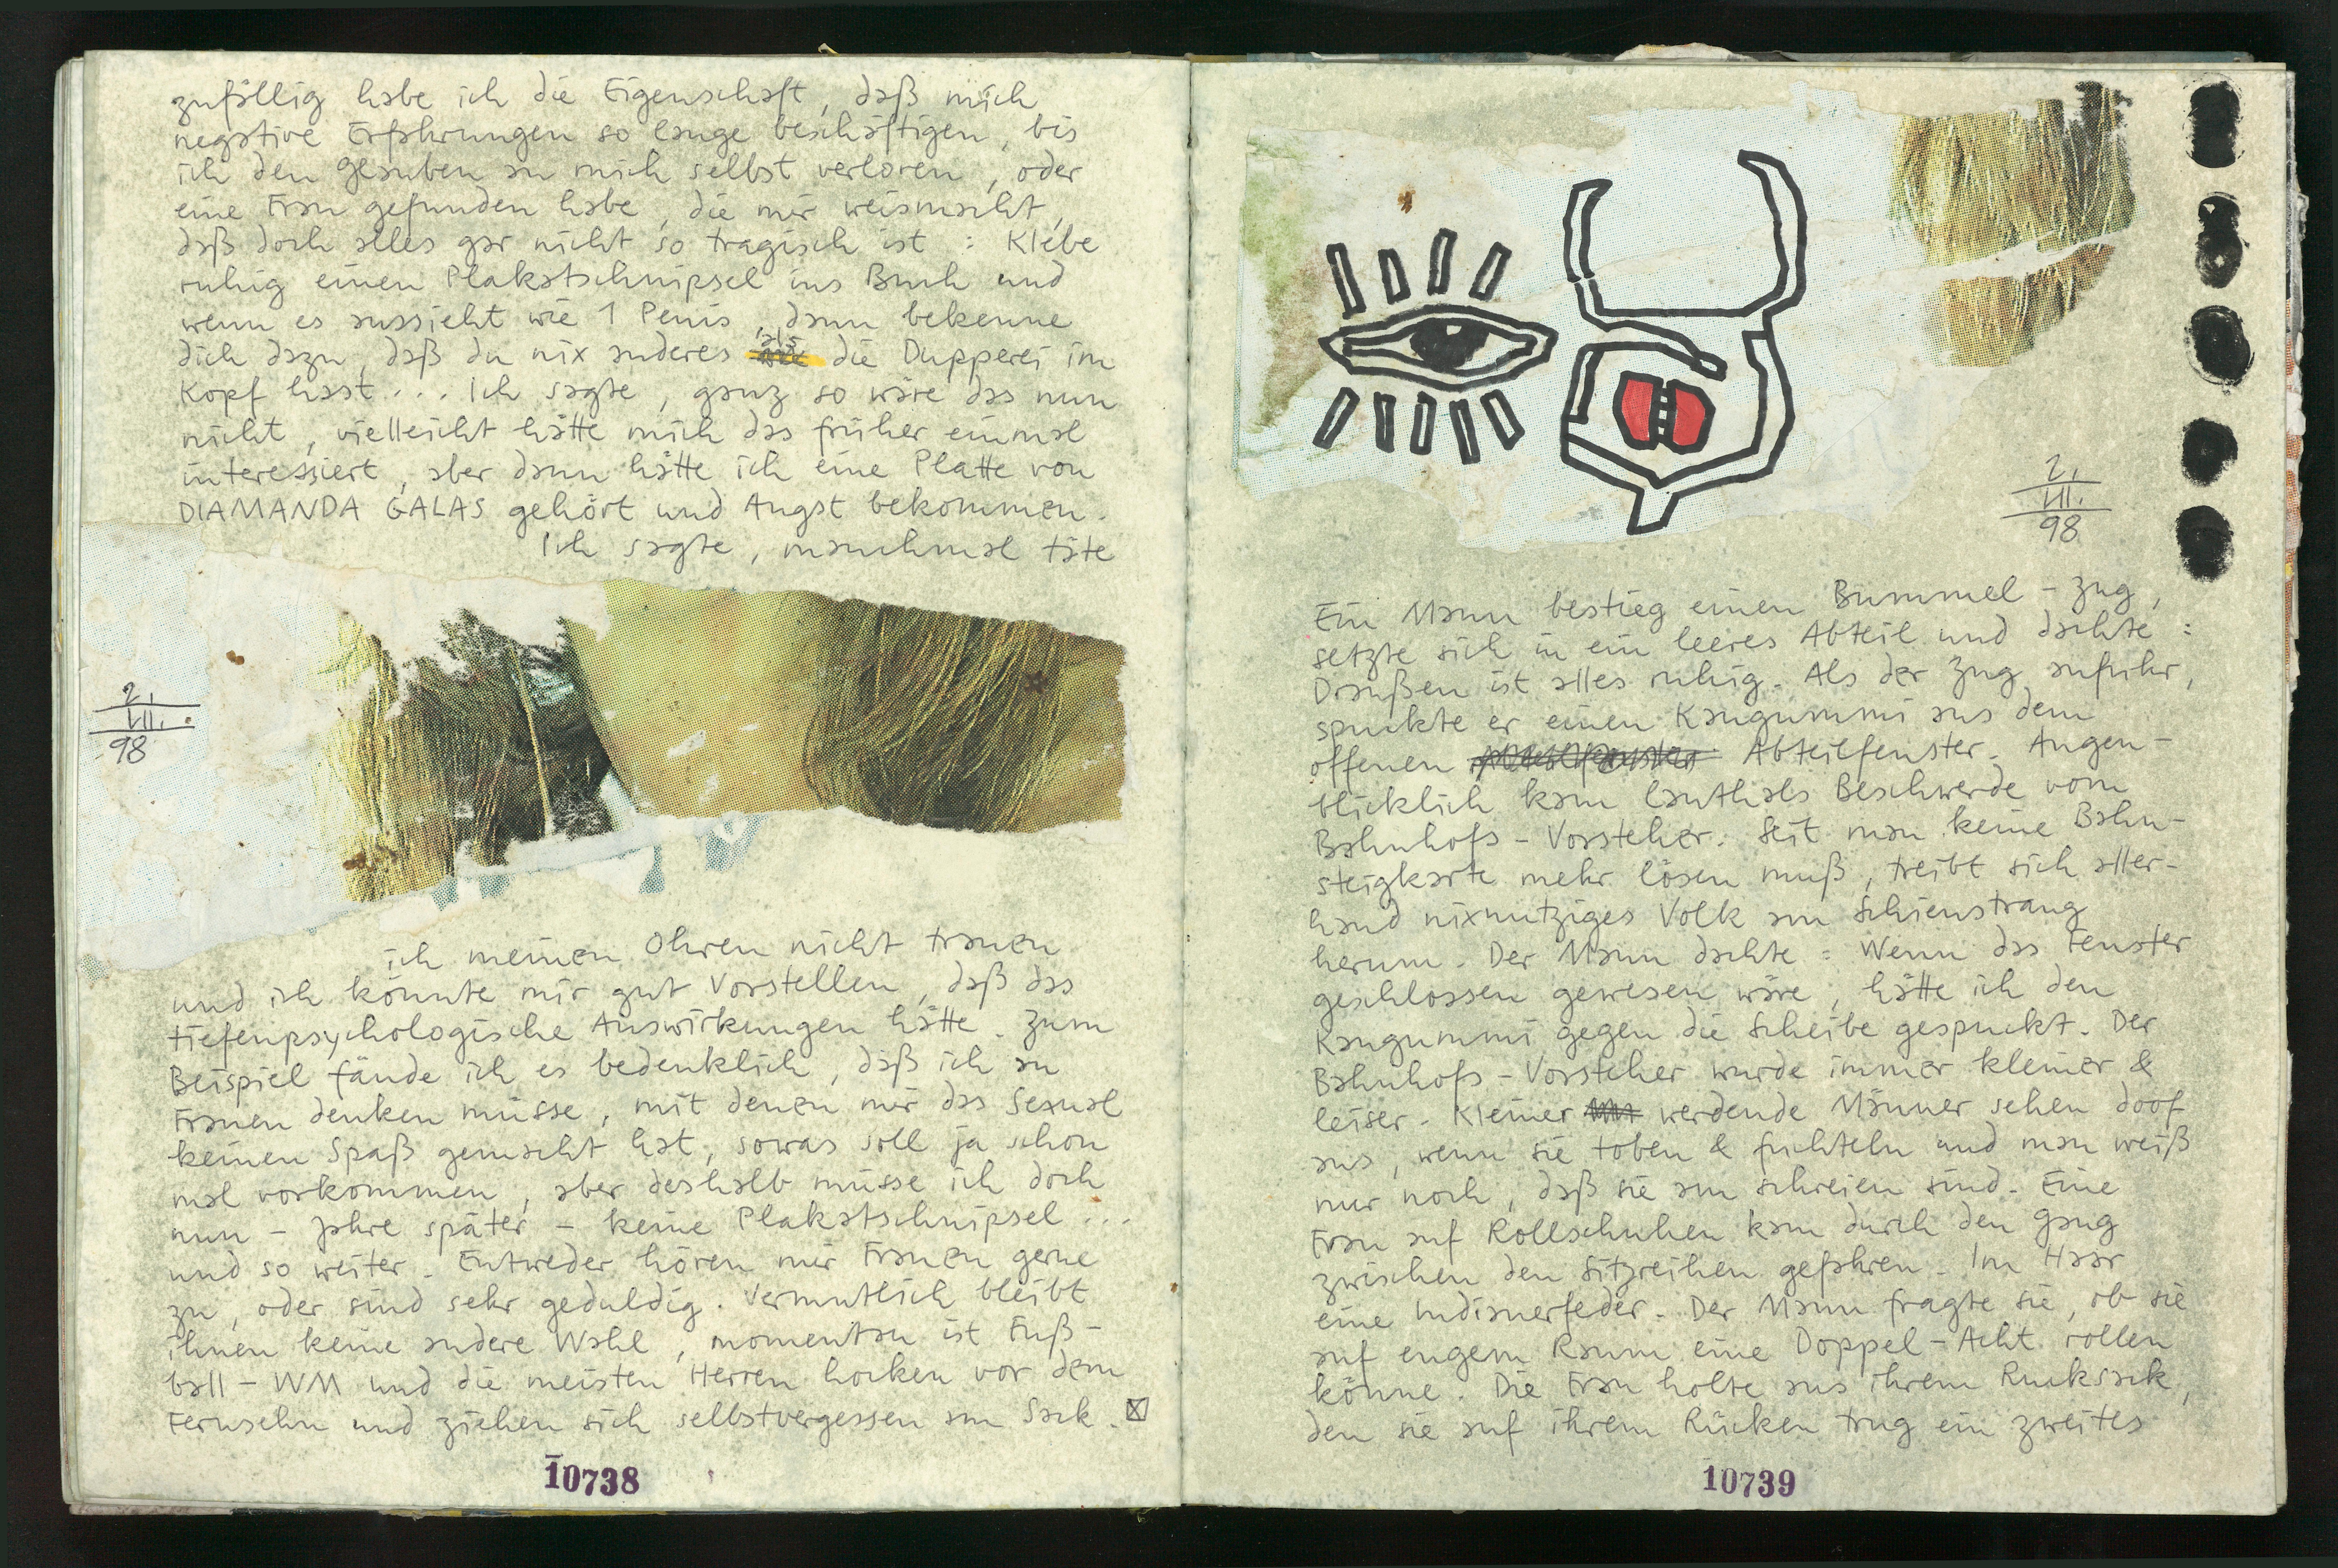 zufällig habe ich die Eigenschaft, daß mich
negative Erfahrungen so lange beschäftigen, bis
ich den Glauben an mich selbst verloren, oder
eine Frau gefunden habe, die mir weismacht,
daß doch alles gar nicht so tragisch ist: Klebe
ruhig einen Plakatschnipsel ins Buch und
wenn es aussieht wie 1 Penis, dann bekenne
dich dazu, daß du nix anderes als die Dupperei im
Kopf hast... Ich sagte, ganz so wäre das nun
nicht, vielleicht hätte mich das früher einmal
interessiert, aber dann hätte ich eine Platte von
DIAMANDA GALAS gehört und Angst bekommen.
Ich sagte, manchmal täte
2.
VII.
98
ich meinen Ohren nicht trauen
und ich könnte mir gut Vorstellen, daß das
tiefenpsychologische Auswirkungen hätte. Zum
Beispiel fände ich es bedenklich, daß ich an
Frauen denken müsse, mit denen mir das Sexual
keinen Spaß gemacht hat, sowas soll ja schon
mal vorkommen, aber deshalb müsse ich doch
nun - Jahre später - keine Plakatschnipsel...
und so weiter. Entweder hören mir Frauen gerne
zu, oder sind sehr geduldig. Vermutlich bleibt
ihnen keine andere Wahl, momentan ist Fuß-
ball-WM und die meisten Herren hocken vor dem
Fernsehn und ziehen sich selbstvergessen am Sack.
10738
2.
VII.
98
Ein Mann bestieg einen Bummel-Zug,
setzte sich in ein leeres Abteil und dachte:
Draußen ist alles ruhig. Als der Zug anfuhr,
spuckte er einen Kaugummi aus dem
offenen Abteilfenster. Augen-
blicklich kam lauthals Beschwerde vom
Bahnhofs-Vorsteher: Seit man keine Bahn-
steigkarte mehr lösen muß, treibt sich aller-
hand nixnutziges Volk am Schienstrang
herum. Der Mann dachte: Wenn das Fenster
geschlossen gewesen wäre, hätte ich den
Kaugummi gegen die Scheibe gespuckt. Der
Bahnhofs-Vorsteher wurde immer kleiner &
leiser. Kleiner werdende Männer sehen doof
aus, wenn sie toben & fuchteln und man weiß
nur noch, daß sie am schreien sind. Eine
Frau auf Rollschuhen kam durch den Gang
zwischen den Sitzreihen gefahren. Im Haar
eine Indianerfeder. Der Mann fragte sie, ob sie
auf engem Raum eine Doppel-Acht rollen
könne. Die Frau holte aus ihrem Rucksack,
den sie auf ihrem Rücken trug ein zweites
10739